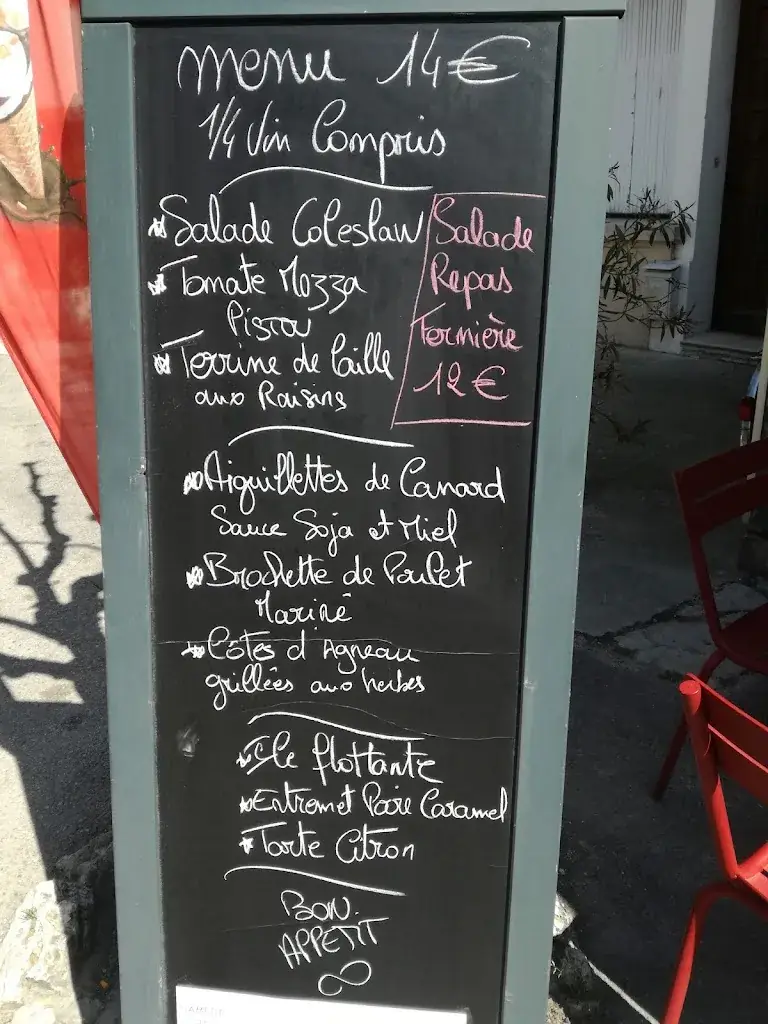 menu 14€
1/4 Vin Compris
Salade Coleslaw
Tomate Mozza
Pistou
Terrine de Caille
aux Raisins
Salade
Repas
Fermière
12€
Aiguillettes de Canard
Sauce Soja et Miel
Brochette de Poulet
Mariné
Côtes d'Agneau
grillées aux herbes
Ile flottante
Entremet Poire Caramel
Tarte Citron
BON
APPETIT